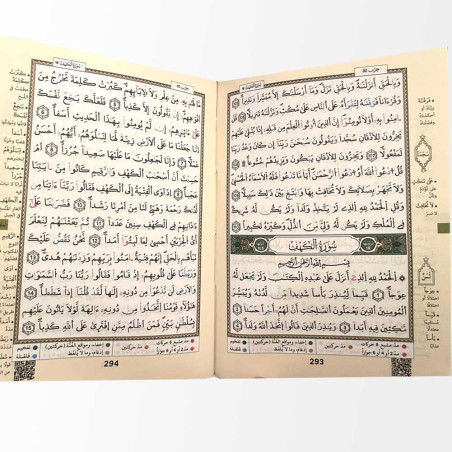 وَبِالْحَقِّ أَنزَلْنَٰهُ وَبِالْحَقِّ نَزَلَ وَمَا أَرْسَلْنَٰكَ إِلَّا مُبَشِّرًا وَنَذِيرًا
وَقُرْءَانًا فَرَقْنَٰهُ لِتَقْرَأَهُ عَلَى النَّاسِ عَلَىٰ مُكْثٍ وَنَزَّلْنَٰهُ تَنزِيلًا
قُلَ ـامِنُوا بِهِ أَوْ لَا تُومِنُوا إِنَّ الَّذِينَ أُوتُوا الْعِلْمَ مِن قَبْلِهِ إِذَا يُتْلَىٰ عَلَيْهِمْ
يَخِرُّونَ لِلَاذْقَانِ سُجَّدًا وَيَقُولُونَ سُبْحَٰنَ رَبِّنَا إِن كَانَ وَعْدُ رَبِّنَا
لَمَفْعُولًا وَيَخِرُّونَ لِلَاذْقَانِ يَبْكُونَ وَيَزِيدُهُمْ خُشُوعًا
قُلُ ادْعُوا اللَّهَ أَوُ ادْعُوا الرَّحْمَٰنَ أَيًّا مَّا تَدْعُوا فَلَهُ الَاسْمَاءُ الْحُسْنَىٰ
وَلَا تَجْهَرْ بِصَلَاتِكَ وَلَا تُخَافِتْ بِهَا وَابْتَغِ بَيْنَ ذَٰلِكَ سَبِيلًا
وَقُلِ الْحَمْدُ لِلَّهِ الَّذِي لَمْ يَتَّخِذْ وَلَدًا وَلَمْ يَكُن لَّهُ شَرِيكٌ
فِي الْمُلْكِ وَلَمْ يَكُن لَّهُ وَلِيٌّ مِّنَ الذُّلِّ وَكَبِّرْهُ تَكْبِيرًا
سُورَةُ الْكَهْفِ
بِسْمِ اللَّهِ الرَّحْمَٰنِ الرَّحِيمِ
الْحَمْدُ لِلَّهِ الَّذِي أَنزَلَ عَلَىٰ عَبْدِهِ الْكِتَٰبَ وَلَمْ يَجْعَل لَّهُ
عِوَجًا قَيِّمًا لِّيُنذِرَ بَأْسًا شَدِيدًا مِّن لَّدُنْهُ وَيُبَشِّرَ
الْمُومِنِينَ الَّذِينَ يَعْمَلُونَ الصَّٰلِحَٰتِ أَنَّ لَهُمُ أَجْرًا حَسَنًا
مَّٰكِثِينَ فِيهِ أَبَدًا وَيُنذِرَ الَّذِينَ قَالُوا اتَّخَذَ اللَّهُ وَلَدًا
293
مَّا لَهُم بِهِ مِنْ عِلْمٍ وَلَا لِأَبَائِهِمْ كَبُرَتْ كَلِمَةً تَخْرُجُ مِنَ
اَفْوَٰهِهِمُ إِن يَقُولُونَ إِلَّا كَذِبًا فَلَعَلَّكَ بَٰخِعٌ نَّفْسَكَ
عَلَىٰ ءَاثَٰرِهِمُ إِن لَّمْ يُومِنُوا بِهَٰذَا الْحَدِيثِ أَسَفًا
إِنَّا جَعَلْنَا مَا عَلَى الَارْضِ زِينَةً لَّهَا لِنَبْلُوَهُمُ أَيُّهُمُ أَحْسَنُ
عَمَلًا وَإِنَّا لَجَٰعِلُونَ مَا عَلَيْهَا صَعِيدًا جُرُزًا أَمْ
حَسِبْتَ أَنَّ أَصْحَٰبَ الْكَهْفِ وَالرَّقِيمِ كَانُوا مِنَ ـايَٰتِنَا
عَجَبًا إِذَ اَوَى الْفِتْيَةُ إِلَى الْكَهْفِ فَقَالُوا رَبَّنَا ءَاتِنَا
مِن لَّدُنكَ رَحْمَةً وَهَيِّئْ لَنَا مِنَ اَمْرِنَا رَشَدًا فَضَرَبْنَا
عَلَىٰ ءَاذَانِهِمْ فِي الْكَهْفِ سِنِينَ عَدَدًا ثُمَّ بَعَثْنَٰهُمْ لِنَعْلَمَ
أَيُّ الْحِزْبَيْنِ أَحْصَىٰ لِمَا لَبِثُوا أَمَدًا نَّحْنُ نَقُصُّ عَلَيْكَ
نَبَأَهُم بِالْحَقِّ إِنَّهُمْ فِتْيَةٌ ـامَنُوا بِرَبِّهِمْ وَزِدْنَٰهُمْ هُدًى
وَرَبَطْنَا عَلَىٰ قُلُوبِهِمُ إِذْ قَامُوا فَقَالُوا رَبُّنَا رَبُّ السَّمَٰوَٰتِ
وَالَارْضِ لَن نَّدْعُوَا مِن دُونِهِ إِلَٰهًا لَّقَدْ قُلْنَا إِذًا شَطَطًا
هَٰؤُلَاءِ قَوْمُنَا اتَّخَذُوا مِن دُونِهِ ءَالِهَةً لَّوْلَا يَاتُونَ عَلَيْهِم
بِسُلْطَٰنٍ بَيِّنٍ فَمَنَ اَظْلَمُ مِمَّنِ افْتَرَىٰ عَلَى اللَّهِ كَذِبًا
294